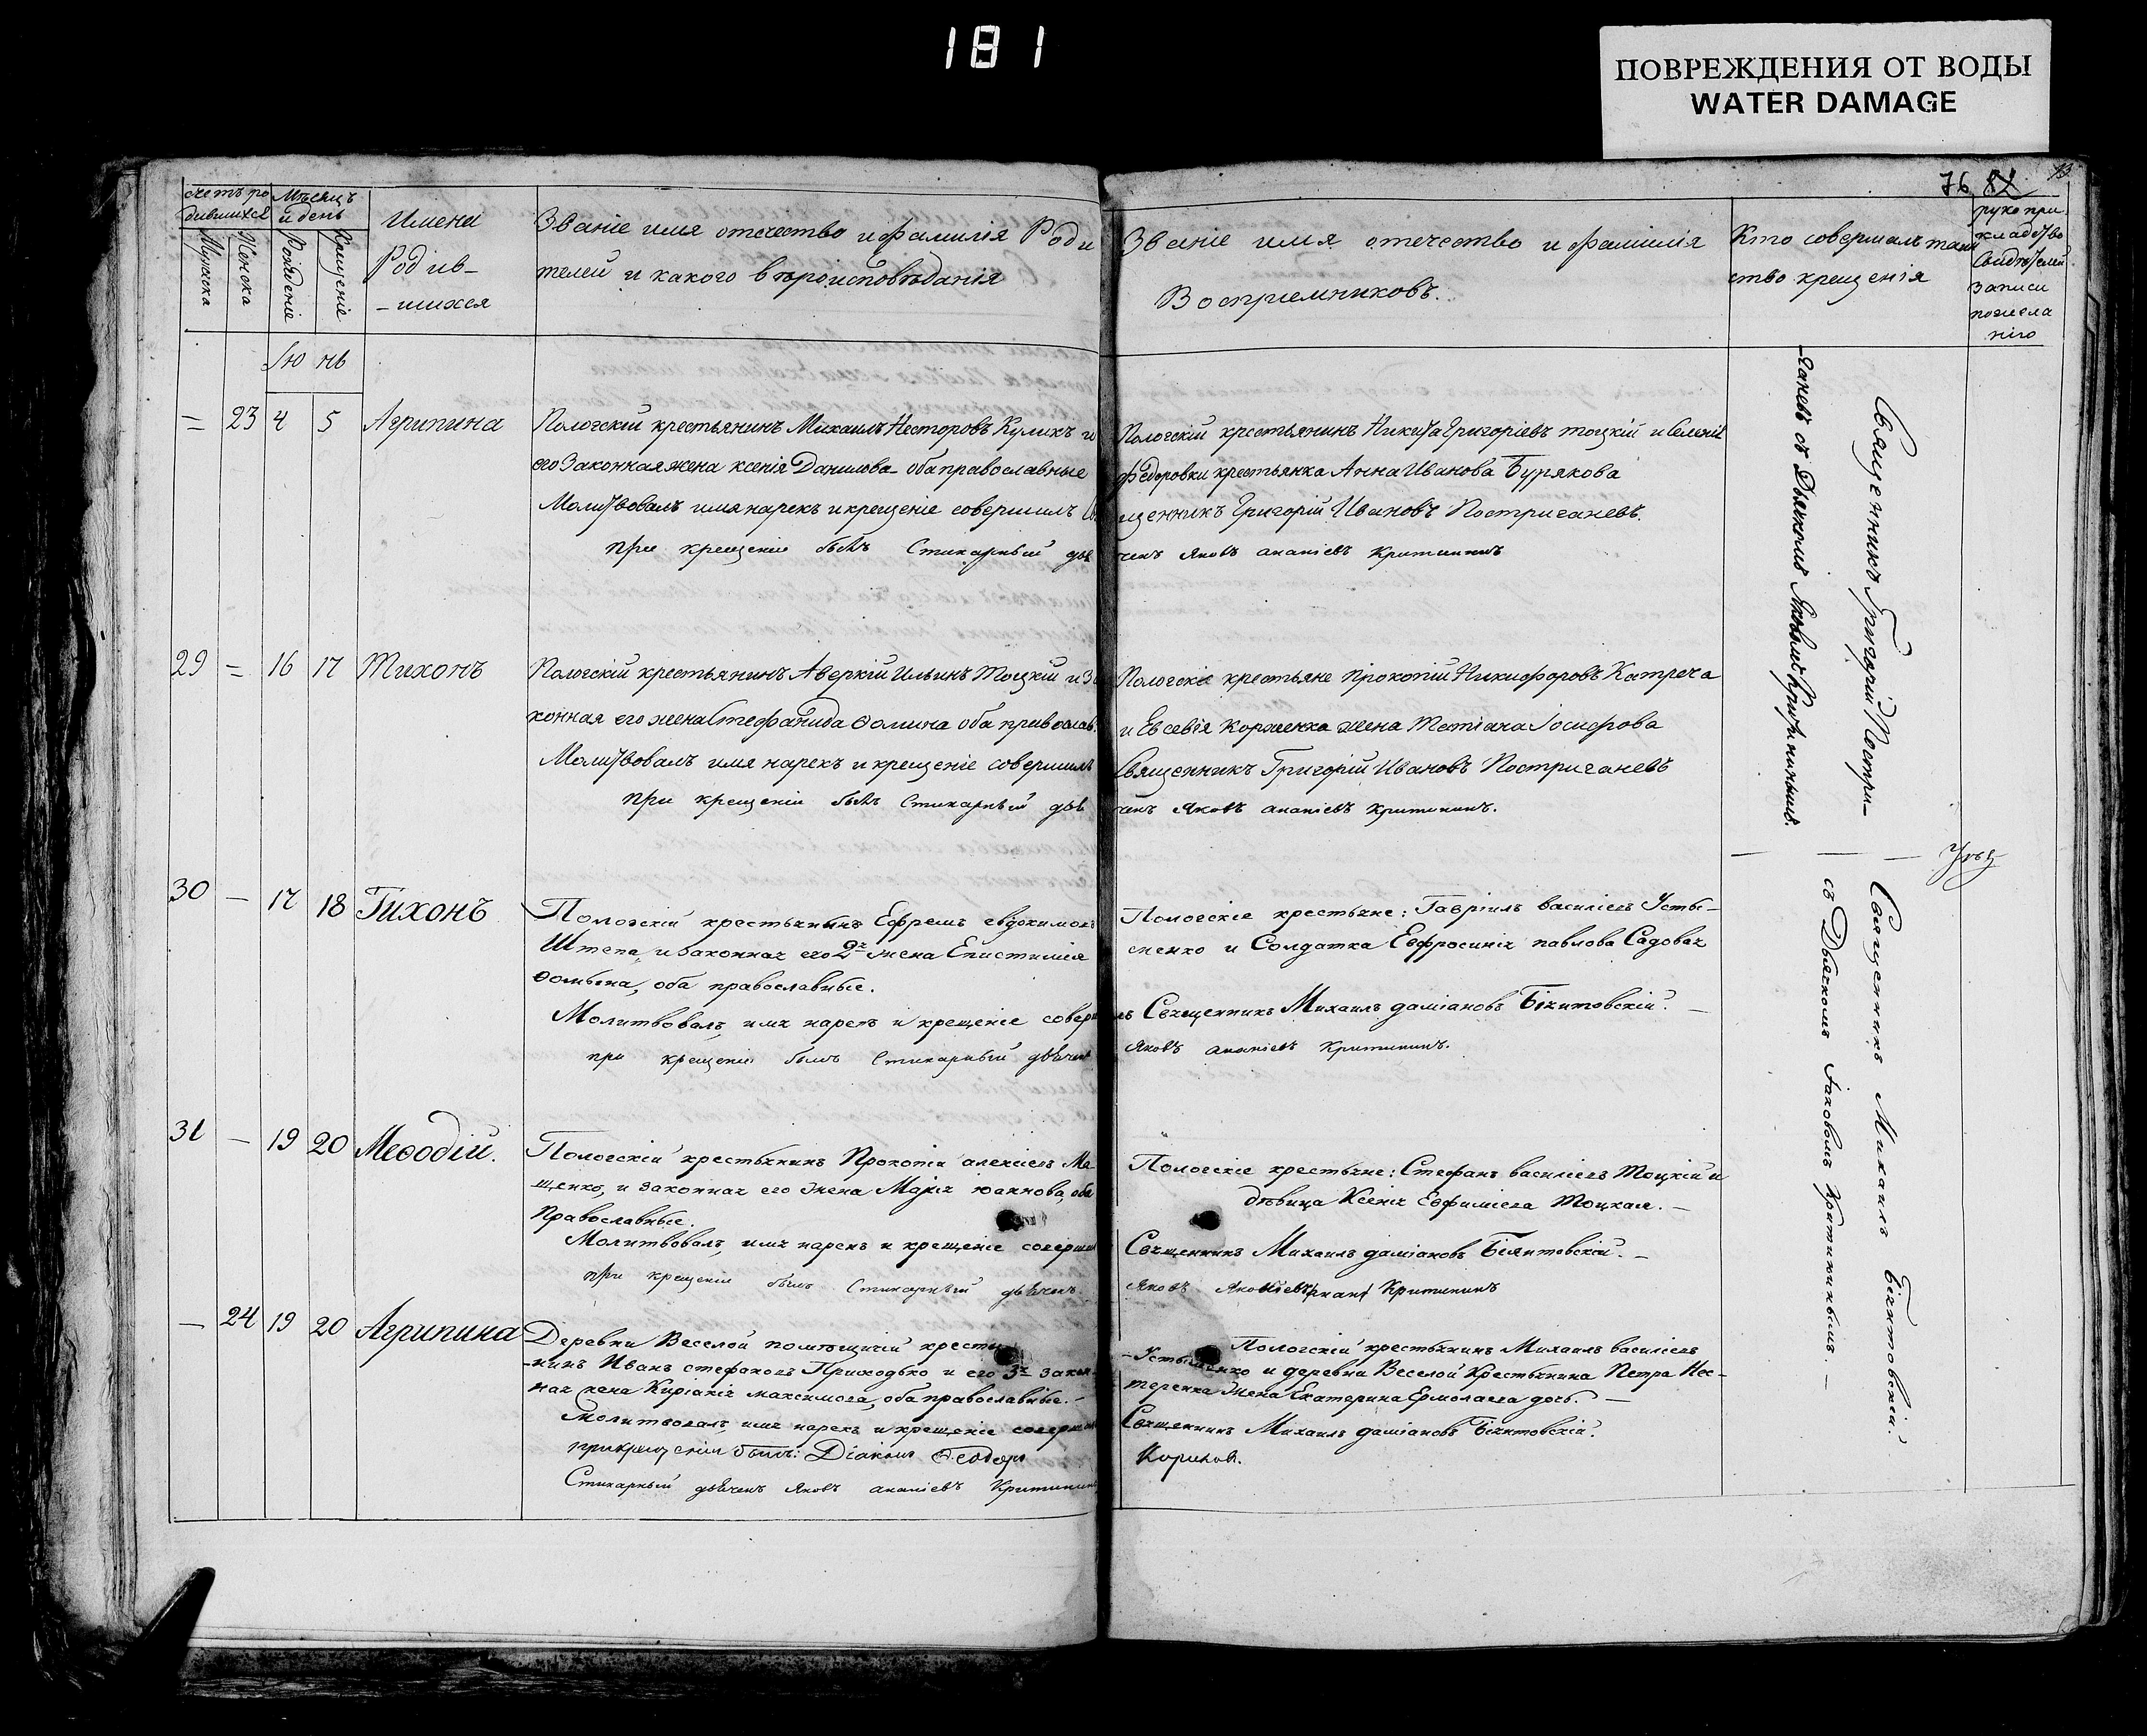 181
ПОВРЕЖДЕНИЯ ОТ ВОДЫ
WATER DAMAGE
76
счетъ ро
дившихся
Мужеска
Женска
Мѣсяцъ
и день
Рожденіе
Крещеніе
Имена
Родив-
-шихся
Званіе имя отечество и фамилія Роди
телей и какого вѣроисповѣданія
Званіе имя отечество и фамилія
Восприемниковъ.
Кто совершалъ таин
ство крещенія
рукопри
кладство
Свидѣтелей
записи
по жела
нію
Іюнь
= 23 4 5 Агрипина
Пологскій крестьянинъ Михаилъ Несторовъ Куликъ и
его Законная жена ксенія Данилова оба православные
Молитвовалъ имя нарекъ и крещеніе совершилъ Свя
при крещеніи былъ Стихарный дья
Пологскій крестьянинъ Никита Григоріевъ тоцкій и Селенія
Федоровки крестьянка Анна Иванова Бурякова
щенникъ Григорій Ивановъ Постриганевъ.
чекъ Яковъ ананіевъ критининъ
29 = 16 17 Тихонъ
Пологскій крестьянинъ Аверкій Ильинъ Тоцкій и За
конная его жена Стефанида Ѳомина оба православ.
Молитвовалъ имя нарекъ и крещеніе совершилъ
при крещеніи былъ Стихарный дья
Пологскіе крестьяне Прокопій Никифоровъ Катреча
и Евсевія Корженка жена Татіана Іосифова
Священникъ Григорій Ивановъ Постриганевъ
чекъ Яковъ ананіевъ критининъ.
30 — 17 18 Тихонъ
Пологскій крестьянинъ Ефремъ евдокимовъ
Штепа, и законная его 2я жена Епистимія
Ѳомина, оба православные.
Молитвовалъ, имя нарекъ и крещеніе совери
при крещеніи былъ Стихарный дьячекъ
Пологскіе крестьяне: Гавріилъ василіевъ Усты-
менко и Солдатка Евфросинія павлова Садовая
лъ Священникъ Михаилъ даміановъ Біянтовскій. —
Яковъ ананіевъ Критининъ.
31 — 19 20 Меѳодій.
Пологскій крестьянинъ Прокопій алексіевъ Ма
щенко, и законная его жена Марія юаннова, оба
Православные.
Молитвовалъ, имя нарекъ и крещеніе соверши
при крещеніи былъ Стихарный дьячекъ
Пологскіе крестьяне: Стефанъ василіевъ Тоцкій и
дѣвица Ксенія Евфиміева Тоцкая. —
Священникъ Михаилъ даміановъ Біянтовскій. —
Яковъ Критининъ
— 24 19 20 Агрипина
Деревни Веселой помѣщичій крестья
-нинъ Иванъ стефановъ Приходько и его 3я закон
ная жена Киріакія максимова, оба православные. —
Молитвовалъ, имя нарекъ и крещеніе соверши
при крещеніи былъ: Діаконъ Ѳеодоръ
Стихарный дьячекъ Яковъ ананіевъ Критининъ
Пологскій крестьянинъ Михаилъ василіевъ
-Устыменко и деревни Веселой Крестьянина Петра Нес-
теренка жена Екатерина Ермолаева дочь. —
Священникъ Михаилъ даміановъ Біянтовскій.
Священникъ Григорій Постри-
-ганевъ съ Дьячкомъ Яковомъ Критининымъ.
Священникъ Михаилъ Біянтовскій.
съ Дьячкомъ Іаковомъ Критининымъ. —